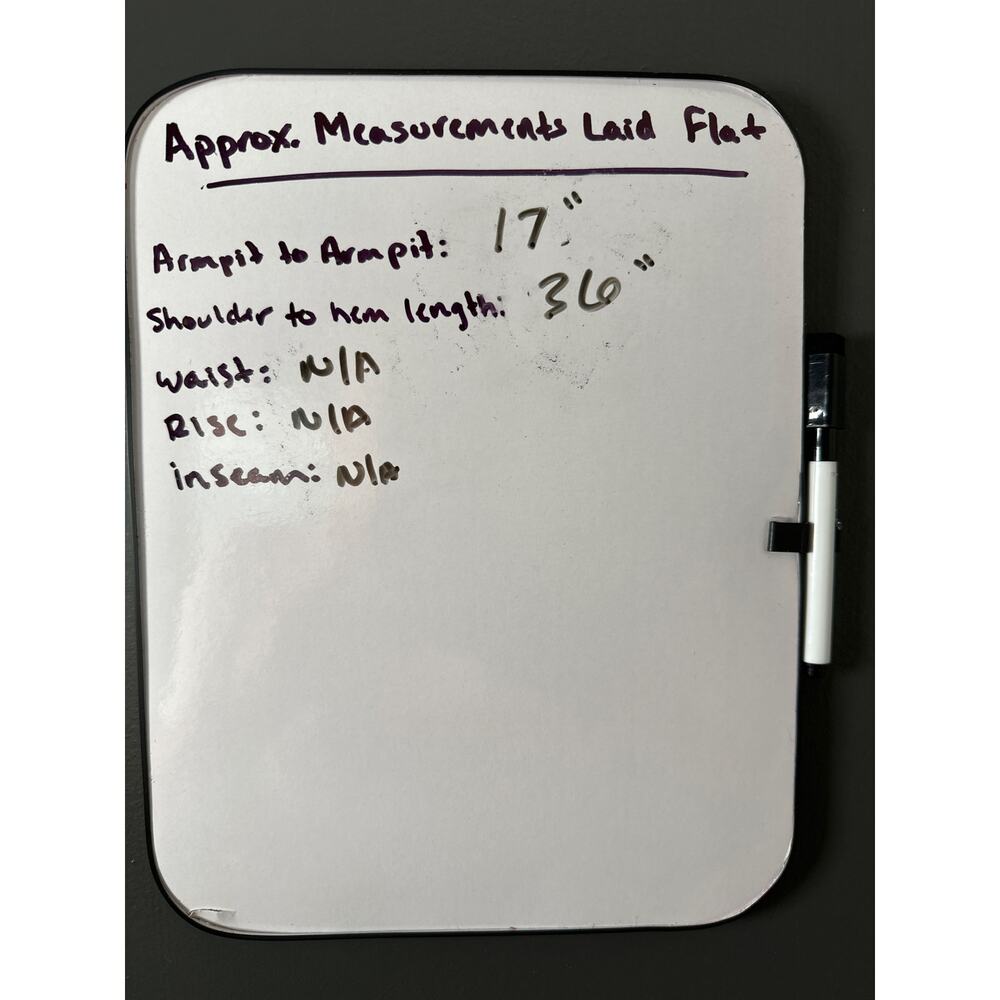 Approx. Measurements Laid Flat
Armpit to Armpit: 17"
Shoulder to hem length: 36"
waist: N/A
Rise: N/A
inseam: N/A